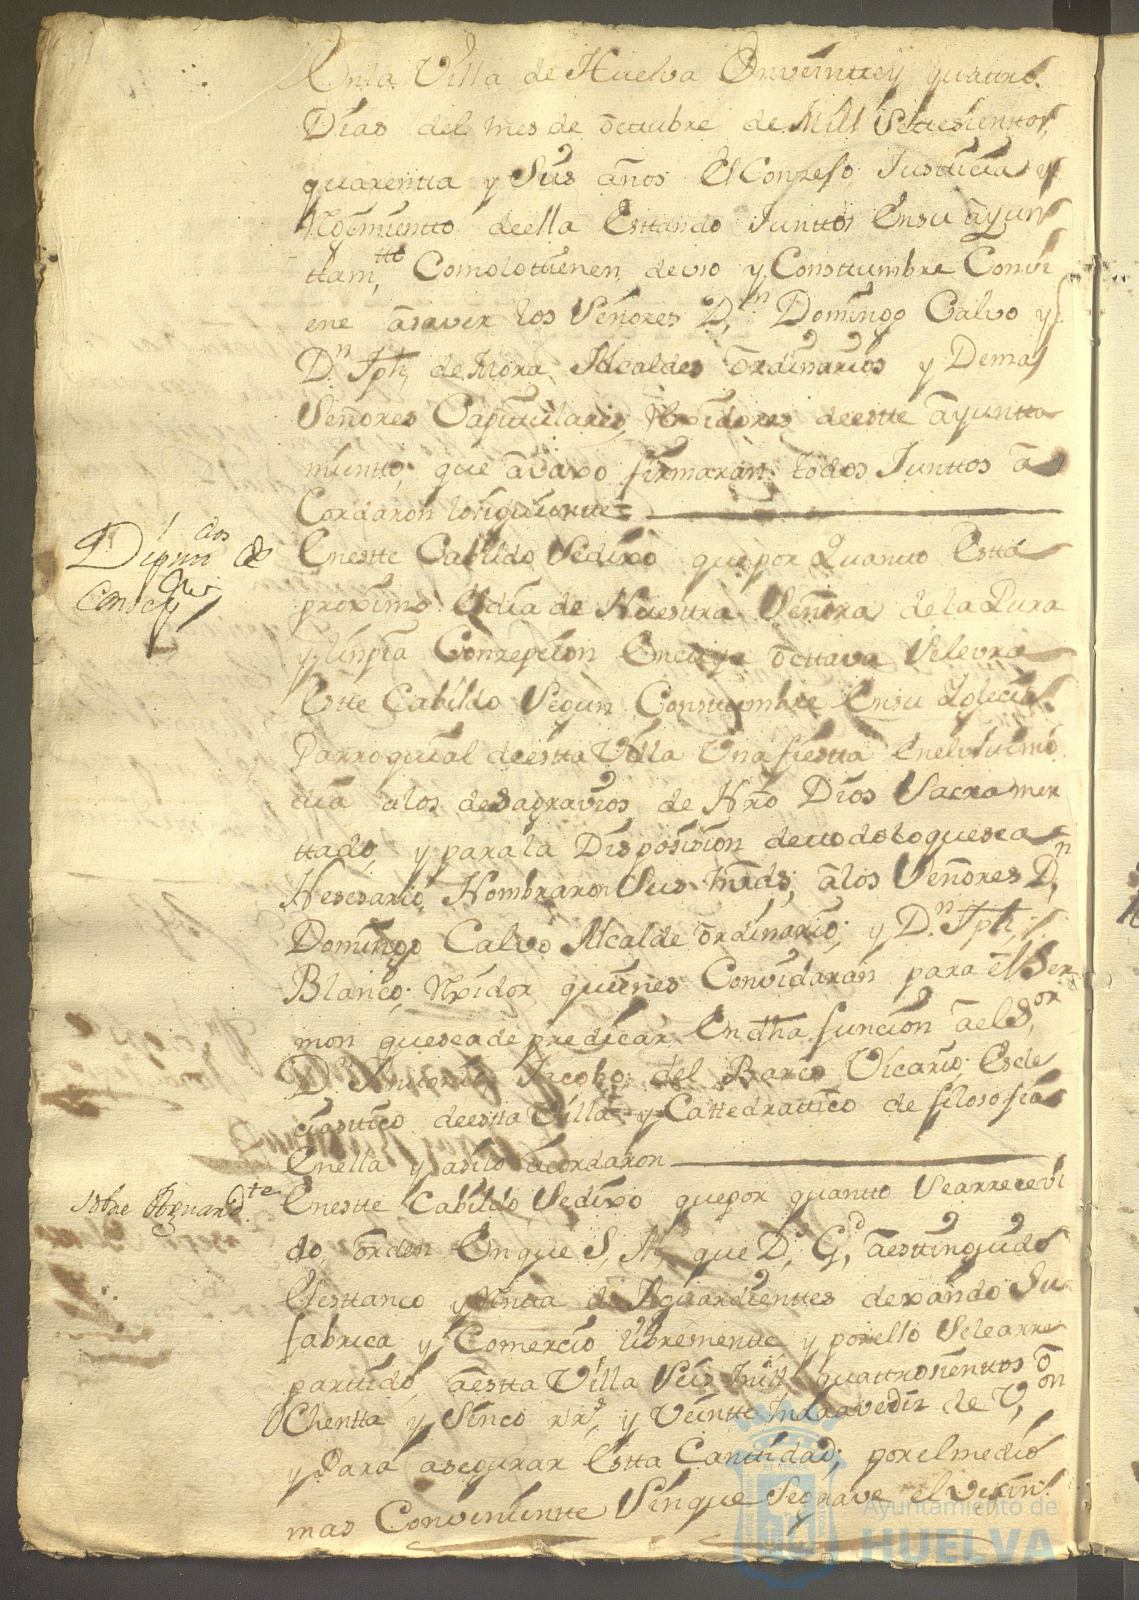 En la Villa de Huelva En veintte y quattro
Dias del mes de octtubre de Mill Settesienttos
quarentta y Seis años El Conzejo, Justticia y
Regimientto de ella Esttando Junttos En su ayun
ttam.tto Como lo ttienen, de vso y Consttumbre Convi
ene a saver los Señores D.n Domingo Calvo y
D.n Jph, de Mora Alcaldes ordinarios y Demas
Señores Capitulares, Rexidores de estte ayuntta
mientto, que avaxo firmaran todos Junttos a
Cordaron lo siguientte =
Diputtados de
Concepn
En estte Cabildo Se dixo que por Quantto Estta
proximo El dia de Nuestra Señora de la Pura
y linpia Conzepcion En cuya octtava Selevra
Estte Cabildo Segun Consttumbre En su Yglecia
Parroquial de estta Villa Una fiestta En el vltimo
dia a los desagravios de Nro Dios Sacramen
ttado, y para la Disposision de ttodo lo que sea
Nesesario, Nombraron Sus mrds, a los Señores D.n
Domingo Calvo Alcalde ordinario, y D.n Jph,
Blanco, Rexidor quienes Convidaran para el Ser
mon que se a de predicar En dha funcion a el S.or
D.n Antonio Jacobo del Barco Vicario, Ecle
ciasttico de estta Villa y Cattedrattico de filosofia
En ella y asi lo acordaron
sobre Aguard.te
En estte Cabildo Se dixo que por quantto Se a rrecevi
do, orden En que S, M, que D.s G.d a esttinguido
El esttanco y Rentta de Aguardienttes dexando Su
fabrica y Comercio libremente, y por ello Se le a rre
parttido, a estta Villa Seis mill quattrosienttos o
Chentta y Sinco rr.s, y Veintte maravedis de V.on
y Para asegurar Estta Canttidad, por el medio
mas Convenientte Sin que Se grave el vesin
Ayuntamiento de
HUELVA